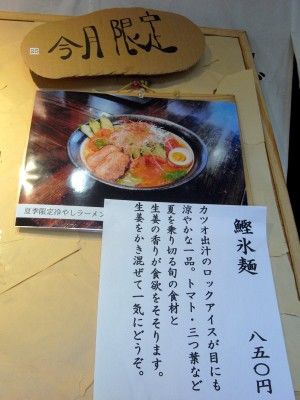 今月限定
夏季限定冷やしラーメン
鰹氷麺 八五〇円
カツオ出汁のロックアイスが目にも
涼やかな一品。トマト・三つ葉など
夏を乗り切る旬の食材と
生姜の香りが食欲をそそります。
生姜をかき混ぜて一気にどうぞ。